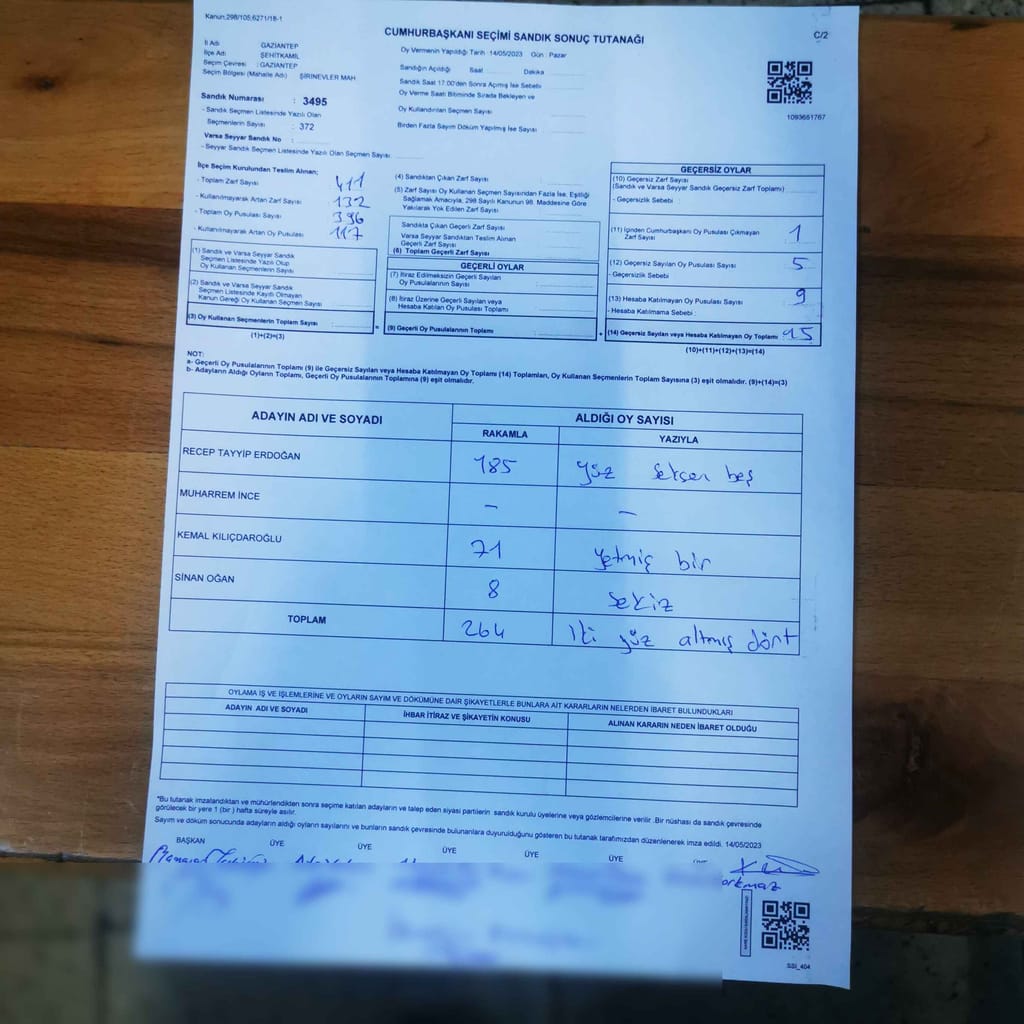 Kanun;298/105;6271/18-1
CUMHURBAŞKANI SEÇİMİ SANDIK SONUÇ TUTANAĞI
C/2
İl Adı GAZİANTEP
İlçe Adı ŞEHİTKAMİL
Seçim Çevresi : GAZİANTEP
Seçim Bölgesi (Mahalle Adı) ŞİRİNEVLER MAH
Sandık Numarası : 3495
- Sandık Seçmen Listesinde Yazılı Olan
Seçmenlerin Sayısı : 372
Varsa Seyyar Sandık No :
- Seyyar Sandık Seçmen Listesinde Yazılı Olan Seçmen Sayısı
Oy Vermenin Yapıldığı Tarih : 14/05/2023 Gün : Pazar
Sandığın Açıldığı Saat Dakika
Sandık Saat 17:00'den Sonra Açımış İse Sebebi
Oy Verme Saati Bitiminde Sırada Bekleyen ve
Oy Kullandırılan Seçmen Sayısı
Birden Fazla Sayım Döküm Yapılmış İse Sayısı
1093651767
İlçe Seçim Kurulundan Teslim Alınan;
- Toplam Zarf Sayısı 411
- Kullanılmayarak Artan Zarf Sayısı 132
- Toplam Oy Pusulası Sayısı 396
- Kullanılmayarak Artan Oy Pusulası 117
(1) Sandık ve Varsa Seyyar Sandık
Seçmen Listesinde Yazılı Olup
Oy Kullanan Seçmenlerin Sayısı
(2) Sandık ve Varsa Seyyar Sandık
Seçmen Listesinde Kayıtlı Olmayan
Kanun Gereği Oy Kullanan Seçmen Sayısı
(3) Oy Kullanan Seçmenlerin Toplam Sayısı :
(1)+(2)=(3)
(4) Sandıktan Çıkan Zarf Sayısı
(5) Zarf Sayısı Oy Kullanan Seçmen Sayısından Fazla İse, Eşitliği
Sağlamak Amacıyla, 298 Sayılı Kanunun 98. Maddesine Göre
Yakılarak Yok Edilen Zarf Sayısı
Sandıkta Çıkan Geçerli Zarf Sayısı
Varsa Seyyar Sandıktan Teslim Alınan
Geçerli Zarf Sayısı
(6) Toplam Geçerli Zarf Sayısı
GEÇERLİ OYLAR
(7) İtiraz Edilmeksizin Geçerli Sayılan
Oy Pusulalarının Sayısı
(8) İtiraz Üzerine Geçerli Sayılan veya
Hesaba Katılan Oy Pusulası Toplamı
(9) Geçerli Oy Pusulalarının Toplamı
GEÇERSİZ OYLAR
(10) Geçersiz Zarf Sayısı
(Sandık ve Varsa Seyyar Sandık Geçersiz Zarf Toplamı)
- Geçersizlik Sebebi :
(11) İçinden Cumhurbaşkanı Oy Pusulası Çıkmayan
Zarf Sayısı 1
(12) Geçersiz Sayılan Oy Pusulası Sayısı 5
- Geçersizlik Sebebi
(13) Hesaba Katılmayan Oy Pusulası Sayısı 9
- Hesaba Katılmama Sebebi :
(14) Geçersiz Sayılan veya Hesaba Katılmayan Oy Toplamı 15
(10)+(11)+(12)+(13)=(14)
NOT:
a- Geçerli Oy Pusulalarının Toplamı (9) ile Geçersiz Sayılan veya Hesaba Katılmayan Oy Toplamı (14) Toplamları, Oy Kullanan Seçmenlerin Toplam Sayısına (3) eşit olmalıdır. (9)+(14)=(3)
b- Adayların Aldığı Oyların Toplamı, Geçerli Oy Pusulalarının Toplamına (9) eşit olmalıdır.
ADAYIN ADI VE SOYADI ALDIĞI OY SAYISI
RAKAMLA YAZIYLA
RECEP TAYYİP ERDOĞAN 185 yüz seksen beş
MUHARREM İNCE - -
KEMAL KILIÇDAROĞLU 71 yetmiş bir
SİNAN OĞAN 8 sekiz
TOPLAM 264 iki yüz altmış dört
OYLAMA İŞ VE İŞLEMLERİNE VE OYLARIN SAYIM VE DÖKÜMÜNE DAİR ŞİKAYETLERLE BUNLARA AİT KARARLARIN NELERDEN İBARET BULUNDUKLARI
ADAYIN ADI VE SOYADI İHBAR İTİRAZ VE ŞİKAYETİN KONUSU ALINAN KARARIN NEDEN İBARET OLDUĞU
*Bu tutanak imzalandıktan ve mühürlendikten sonra seçime katılan adayların ve talep eden siyasi partilerin sandık kurulu üyelerine veya gözlemcilerine verilir. Bir nüshası da sandık çevresinde
görülecek bir yere 1 (bir) hafta süreyle asılır.
Sayım ve döküm sonucunda adayların aldığı oyların sayılarını ve bunların sandık çevresinde bulunanlara duyurulduğunu gösteren bu tutanak tarafımızdan düzenlenerek imza edildi. 14/05/2023
BAŞKAN ÜYE ÜYE ÜYE ÜYE ÜYE
SSI_404